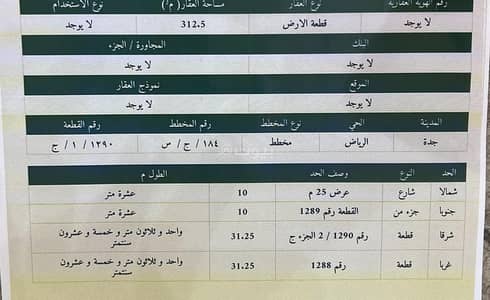 رقم الهوية العقارية نوع العقار مساحة العقار (م²) نوع الاستخدام
لا يوجد قطعة الأرض 312.5 لا يوجد
البنك المجاورة / الجزء
لا يوجد لا يوجد
الموقع نموذج العقار
لا يوجد لا يوجد
المدينة الحي نوع المخطط رقم المخطط رقم القطعة
جدة الرياض مخطط ١٨٤ / ج / س ١٣٩٠ / ١ / ج
الحد النوع وصف الحد الطول م
شمالا شارع عرض 25 م 10 عشرة متر
جنوبا جزء من القطعة رقم 1289 10 عشرة متر
شرقا قطعة رقم 1290 / 2 الجزء ج 31.25 واحد و ثلاثون متر و خمسة و عشرون
سنتمتر
غربا قطعة رقم 1288 31.25 واحد و ثلاثون متر و خمسة و عشرون
سنتمتر